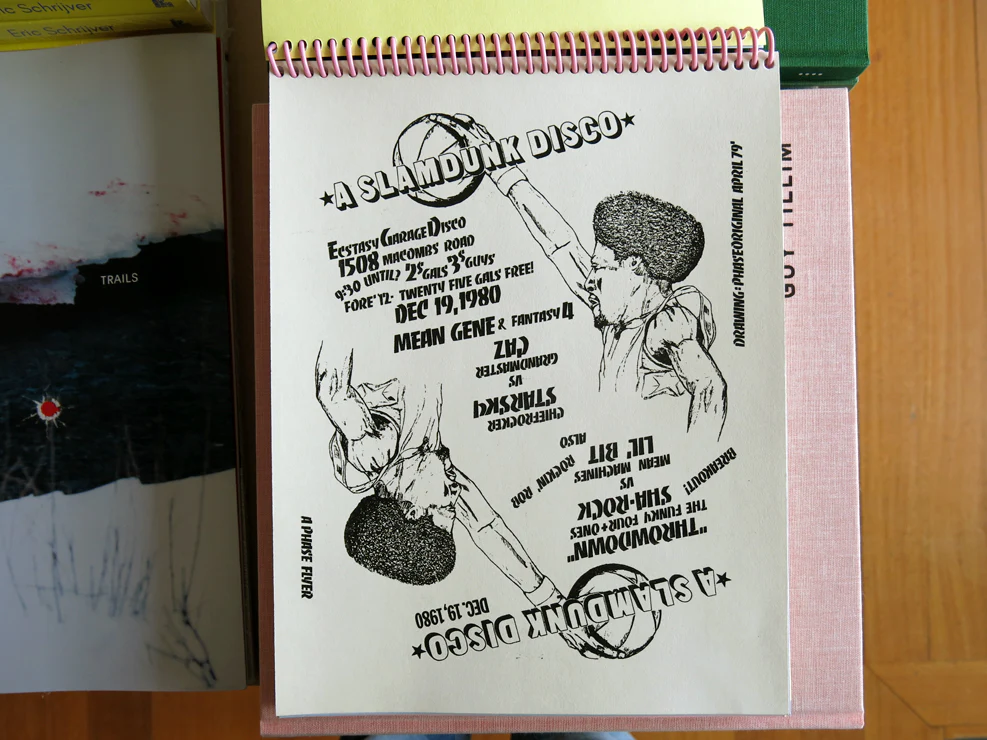 Eric Schrijver
Eric Schrijver
TRAILS
★A SLAMDUNK DISCO★
ECSTASY GARAGE DISCO
1508 MACOMBS ROAD
9:30 UNTIL? 2$ GALS 3$ GUYS
FORE' 12- TWENTY FIVE GALS FREE!
DEC 19, 1980
MEAN GENE & FANTASY 4
DRAWING: PHASE ORIGINAL APRIL 79'
★A SLAMDUNK DISCO★
DEC. 19, 1980
"THROWDOWN"
THE FUNKY FOUR+ONES
SHA-ROCK
VS
MEAN MACHINES
LIL' BIT
BREAKOUT!
ALSO ROCKIN' ROB
CHIEFROCKER
STARSKY
VS
GRANDMASTER
CAZ
A PHASE FLYER